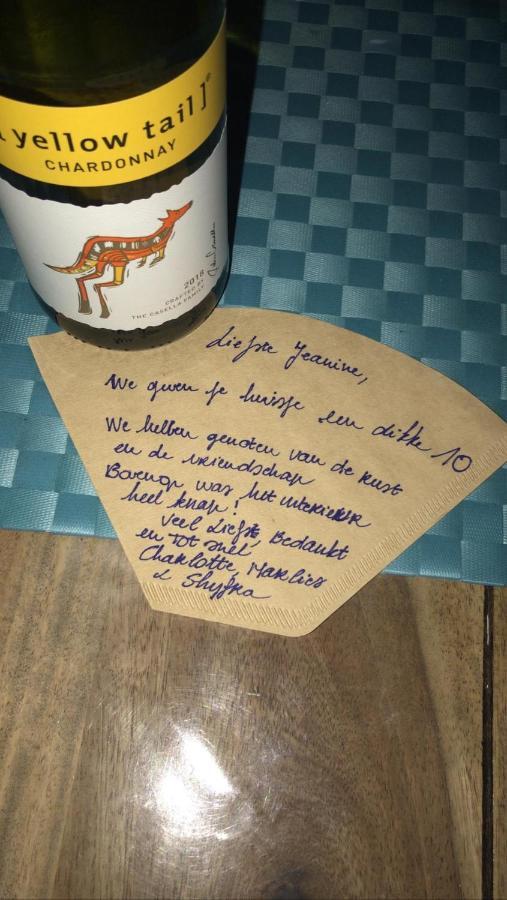 [yellow tail]®
CHARDONNAY
2018
CRAFTED BY
THE CASELLA FAMILY
Liefste Jeanine,
We gven je huisje een dikke 10
We hebben genoten van de rust
en de vriendschap
Bovenop was het interieur
heel knap!
Veel Liefs, Bedankt
en tot snel
Charlotte, Marlies
&